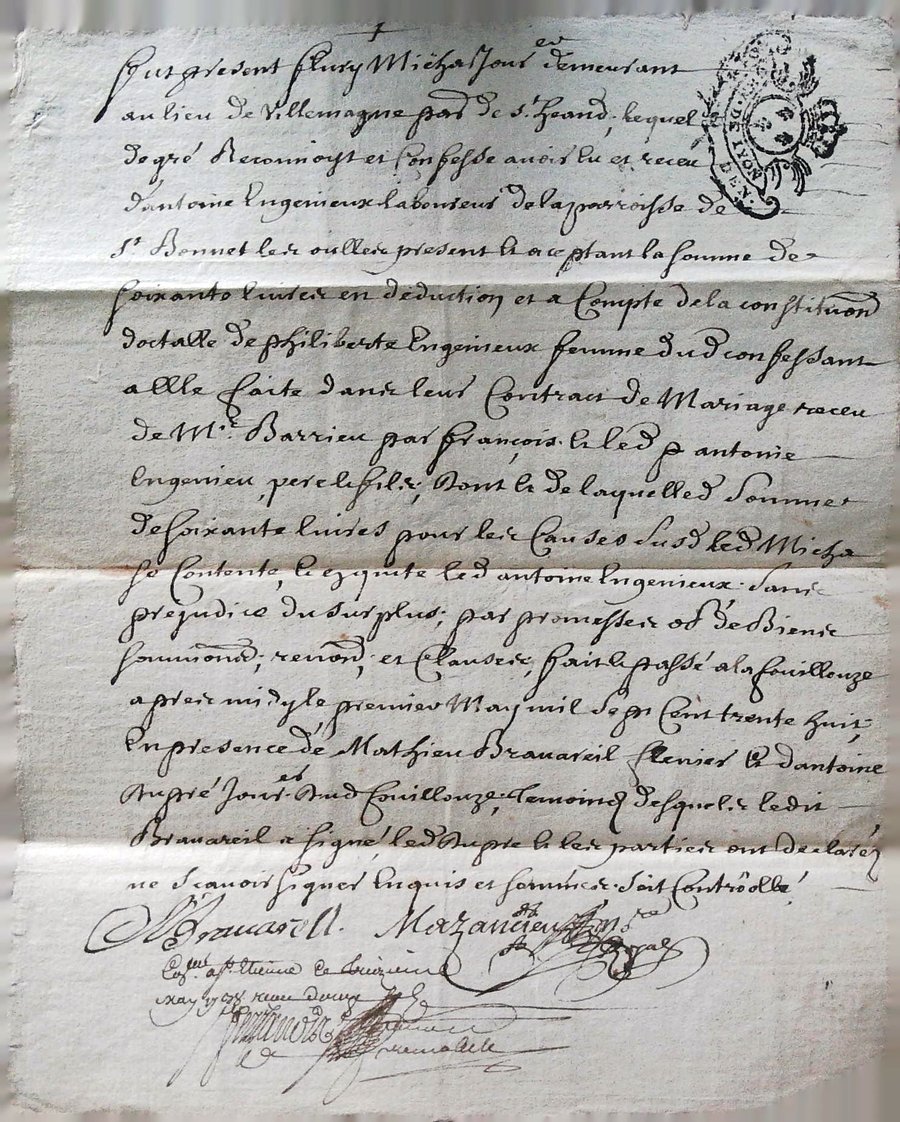 fut present fleury Micha Jour^er demeurant
au lieu de Villemagne par de s^t heand, lequel
de gré Reconnoyt et Confesse avoir Eu et receu
d'antoine Engenieux laboureur de la parroisse de
S^t Bonnet les oulles present et aceptant la somme de
soixante livres en deduction et a Compte de la constitūon
doctalle de philiberte Engenieux femme dud confessant
a Elle faite dans leur Contract de Mariage receu
de M^e Barrieu par françois et led p antoine
Engenieu, pere et fils, dont et de laquelle d somme
de soixante livres pour les Causes susd led Micha
se Contente, et equite led antoine Engenieux sans
prejudice du surplus; par promesses ob de Biens
soumiond, renond, et Clauses, fait et passé a la fouillouze
apres midy le premier May mil sept Cent trente huit,
En presence de Mathieu Bravareil et d'antoine
dupré Jour^er dud fouillouze, temoins desquels ledit
Bravareil a signé, led dupre et les parties ont declarés
ne sçavoir signer Enquis et sommés. soit Controllé
Bravarell. Mazancieu
royal
a S^t Etienne le
may 1738 receu douze sols